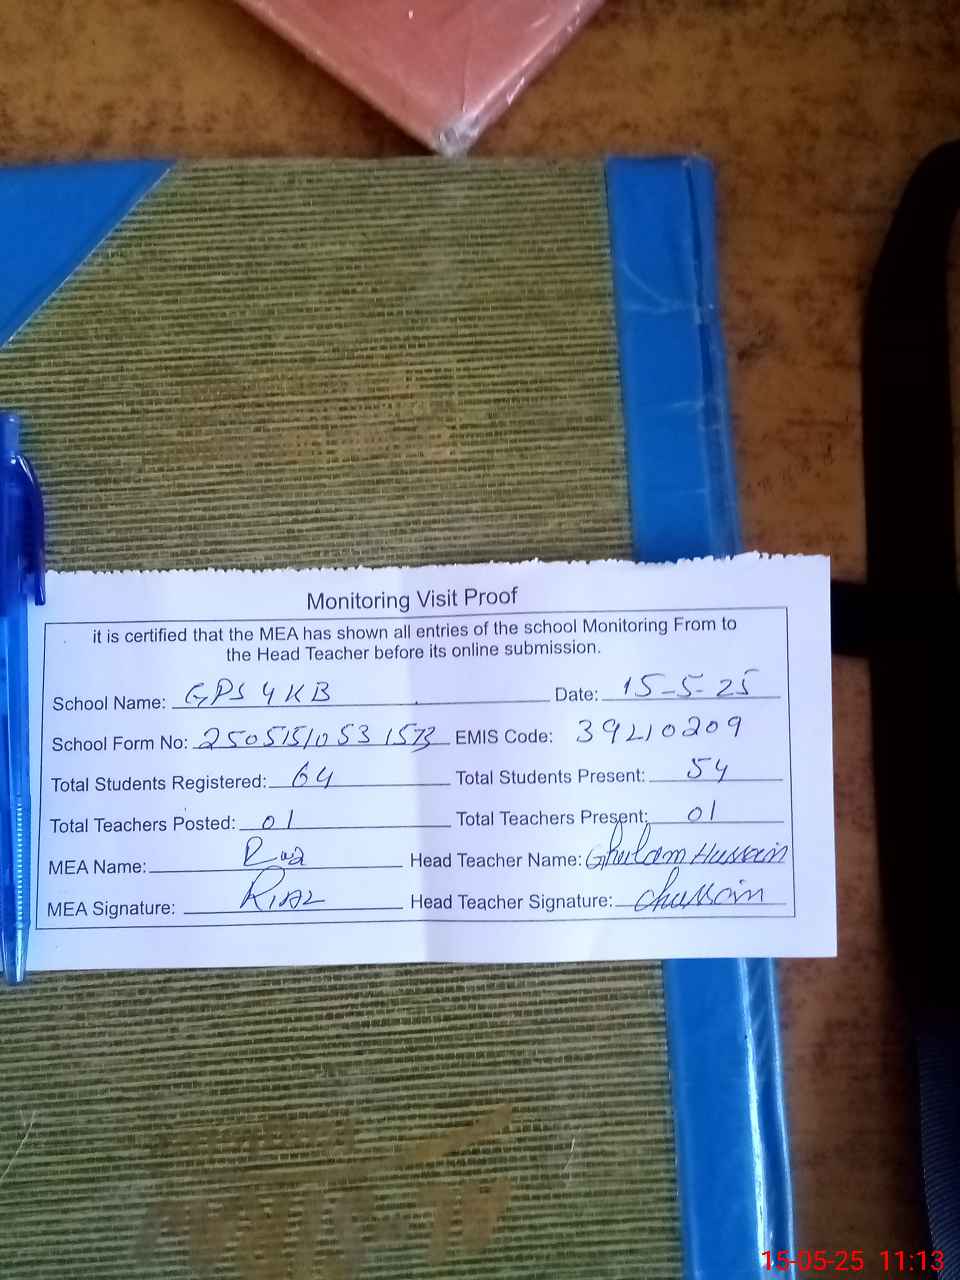 Monitoring Visit Proof
it is certified that the MEA has shown all entries of the school Monitoring From to
the Head Teacher before its online submission.
School Name: GPS 4 KB Date: 15-5-25
School Form No: 25051510531573 EMIS Code: 39210209
Total Students Registered: 64 Total Students Present: 54
Total Teachers Posted: 01 Total Teachers Present: 01
MEA Name: Head Teacher Name: Ghulam Hussain
MEA Signature: Riaz Head Teacher Signature: Ghussain
15-05-25 11:13